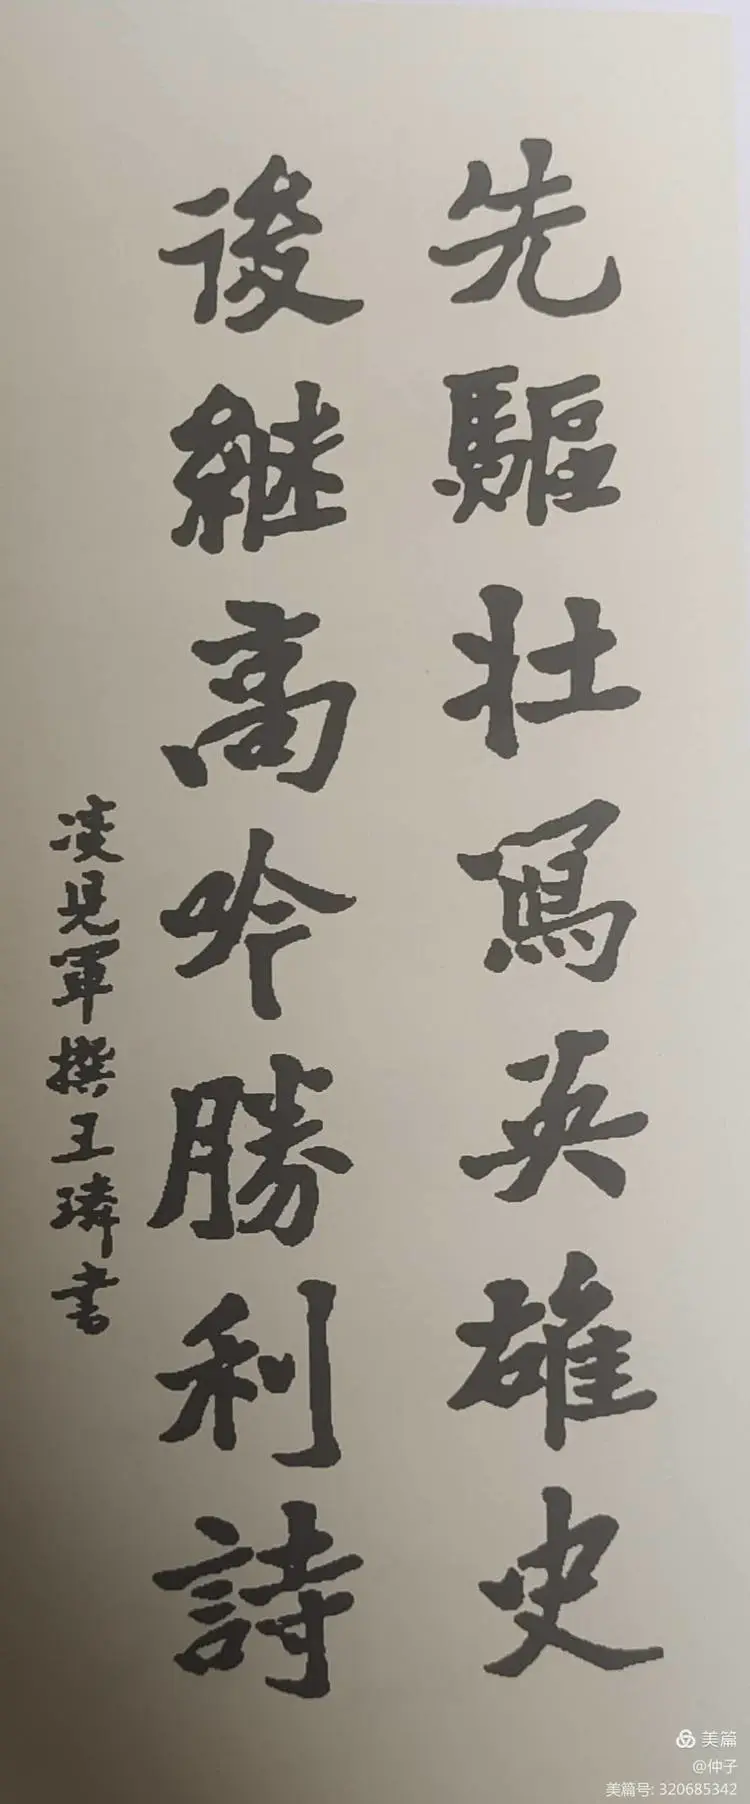 先驅壮寫英雄史
後継高吟勝利詩
凌見軍撰王璘书
美篇
@仲子
美篇号: 320685342